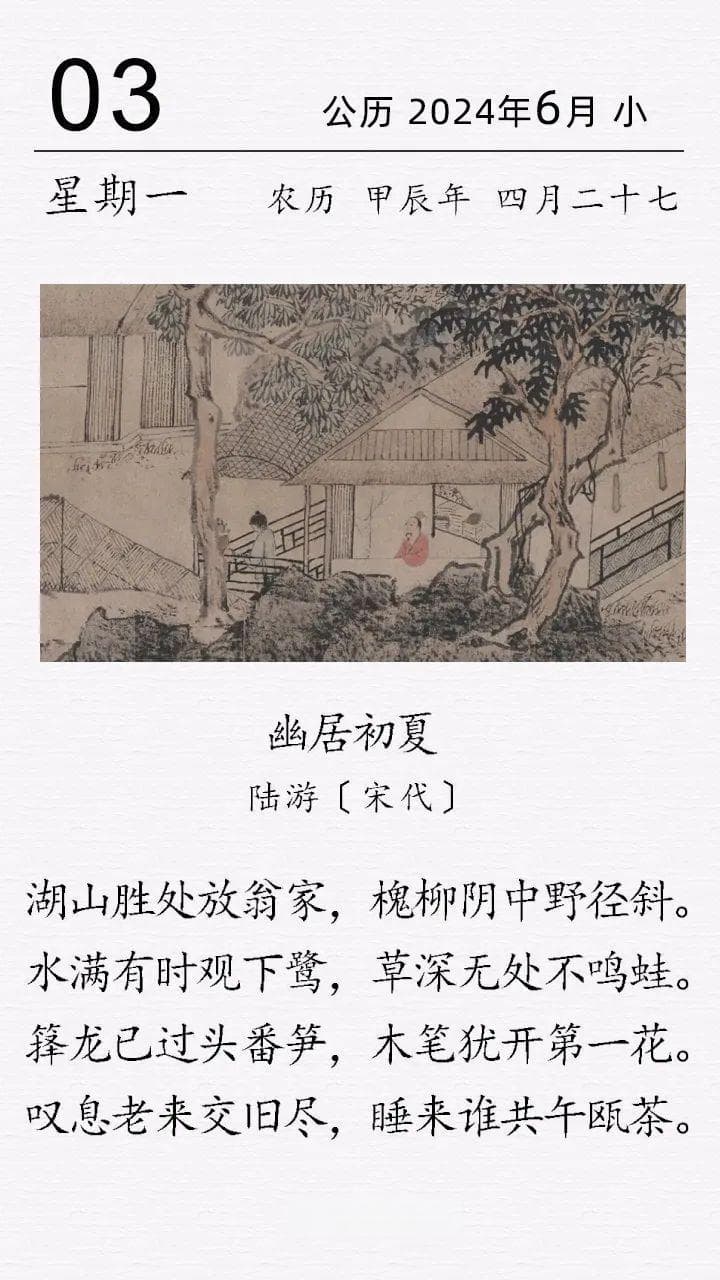 03
公历 2024年6月 小
星期一 农历 甲辰年 四月二十七
幽居初夏
陆游〔宋代〕
湖山胜处放翁家，槐柳阴中野径斜。
水满有时观下鹭，草深无处不鸣蛙。
箨龙已过头番笋，木笔犹开第一花。
叹息老来交旧尽，睡来谁共午瓯茶。